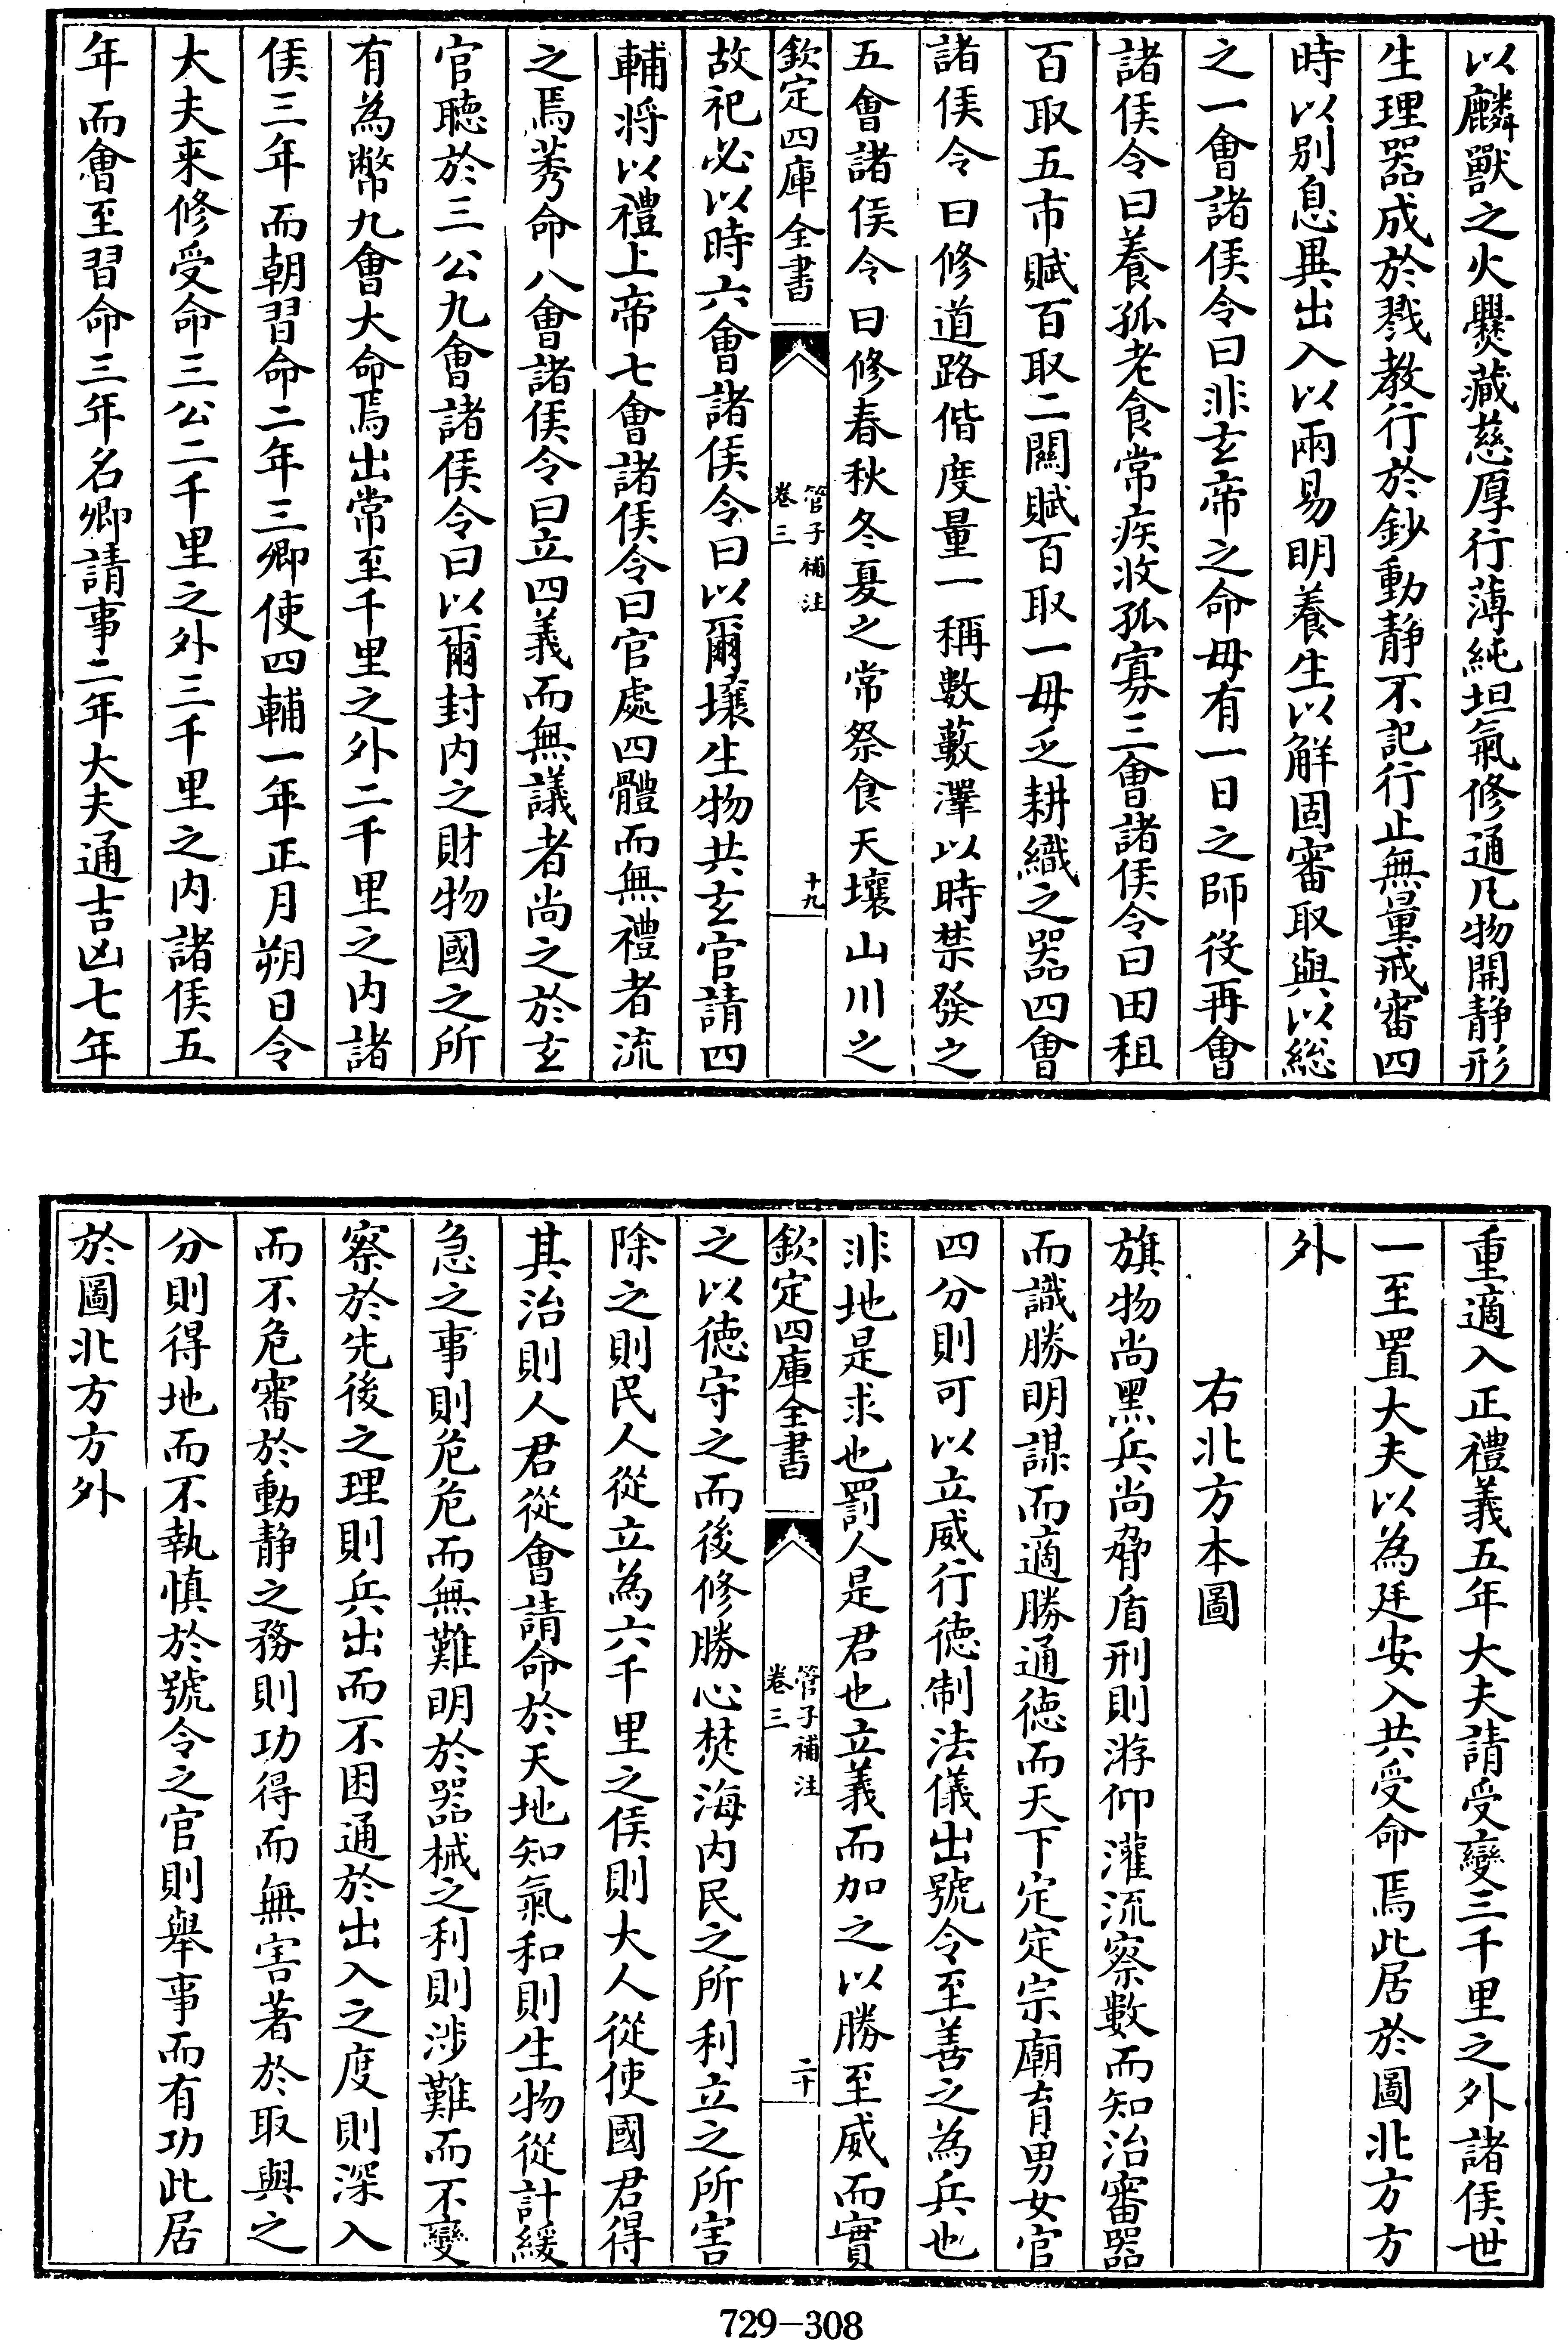 以麟獸之火爨藏慈厚行薄純坦氣修通凡物開静形
生理器成於戮教行於鈔動静不記行止無量戒審四
時以别息異出入以兩易明養生以解固審取與以総
之一會諸侯令曰非玄帝之命毋有一日之師役再會
諸侯令曰養孤老食常疾收孤寡三會諸侯令曰田租
百取五市賦百取二關賦百取一毋乏耕織之器四會
諸侯令曰修道路偕度量一稱數藪澤以時禁發之
五會諸侯令曰修春秋冬夏之常祭食天壤山川之
欽定四庫全書
管子補注
卷三
十九
故祀必以時六會諸侯令曰以爾壤生物共玄官請四
輔将以禮上帝七會諸侯令曰官處四體而無禮者流
之焉莠命八會諸侯令曰立四義而無議者尚之於玄
官聽於三公九會諸侯令曰以爾封内之財物國之所
有為幣九會大命焉出常至千里之外二千里之内諸
侯三年而朝習命二年三卿使四輔一年正月朔日令
大夫来修受命三公二千里之外三千里之内諸侯五
年而會至習命三年名卿請事二年大夫通吉凶七年
重適入正禮義五年大夫請受變三千里之外諸侯世
一至置大夫以為廷安入共受命焉此居於圖北方方
外
右北方本圖
旗物尚黑兵尚脅盾刑則游仰灌流察數而知治審器
而識勝明謀而適勝通徳而天下定定宗廟育男女官
四分則可以立威行徳制法儀出號令至善之為兵也
非地是求也罰人是君也立義而加之以勝至威而實
欽定四庫全書
管子補注
卷三
二十
之以徳守之而後修勝心焚海内民之所利立之所害
除之則民人從立為六千里之侯則大人從使國君得
其治則人君從會請命於天地知氣和則生物從計緩
急之事則危危而無難明於器械之利則涉難而不變
察於先後之理則兵出而不困通於出入之度則深入
而不危審於動静之務則功得而無害著於取與之
分則得地而不執慎於號令之官則舉事而有功此居
於圖北方方外
729-308